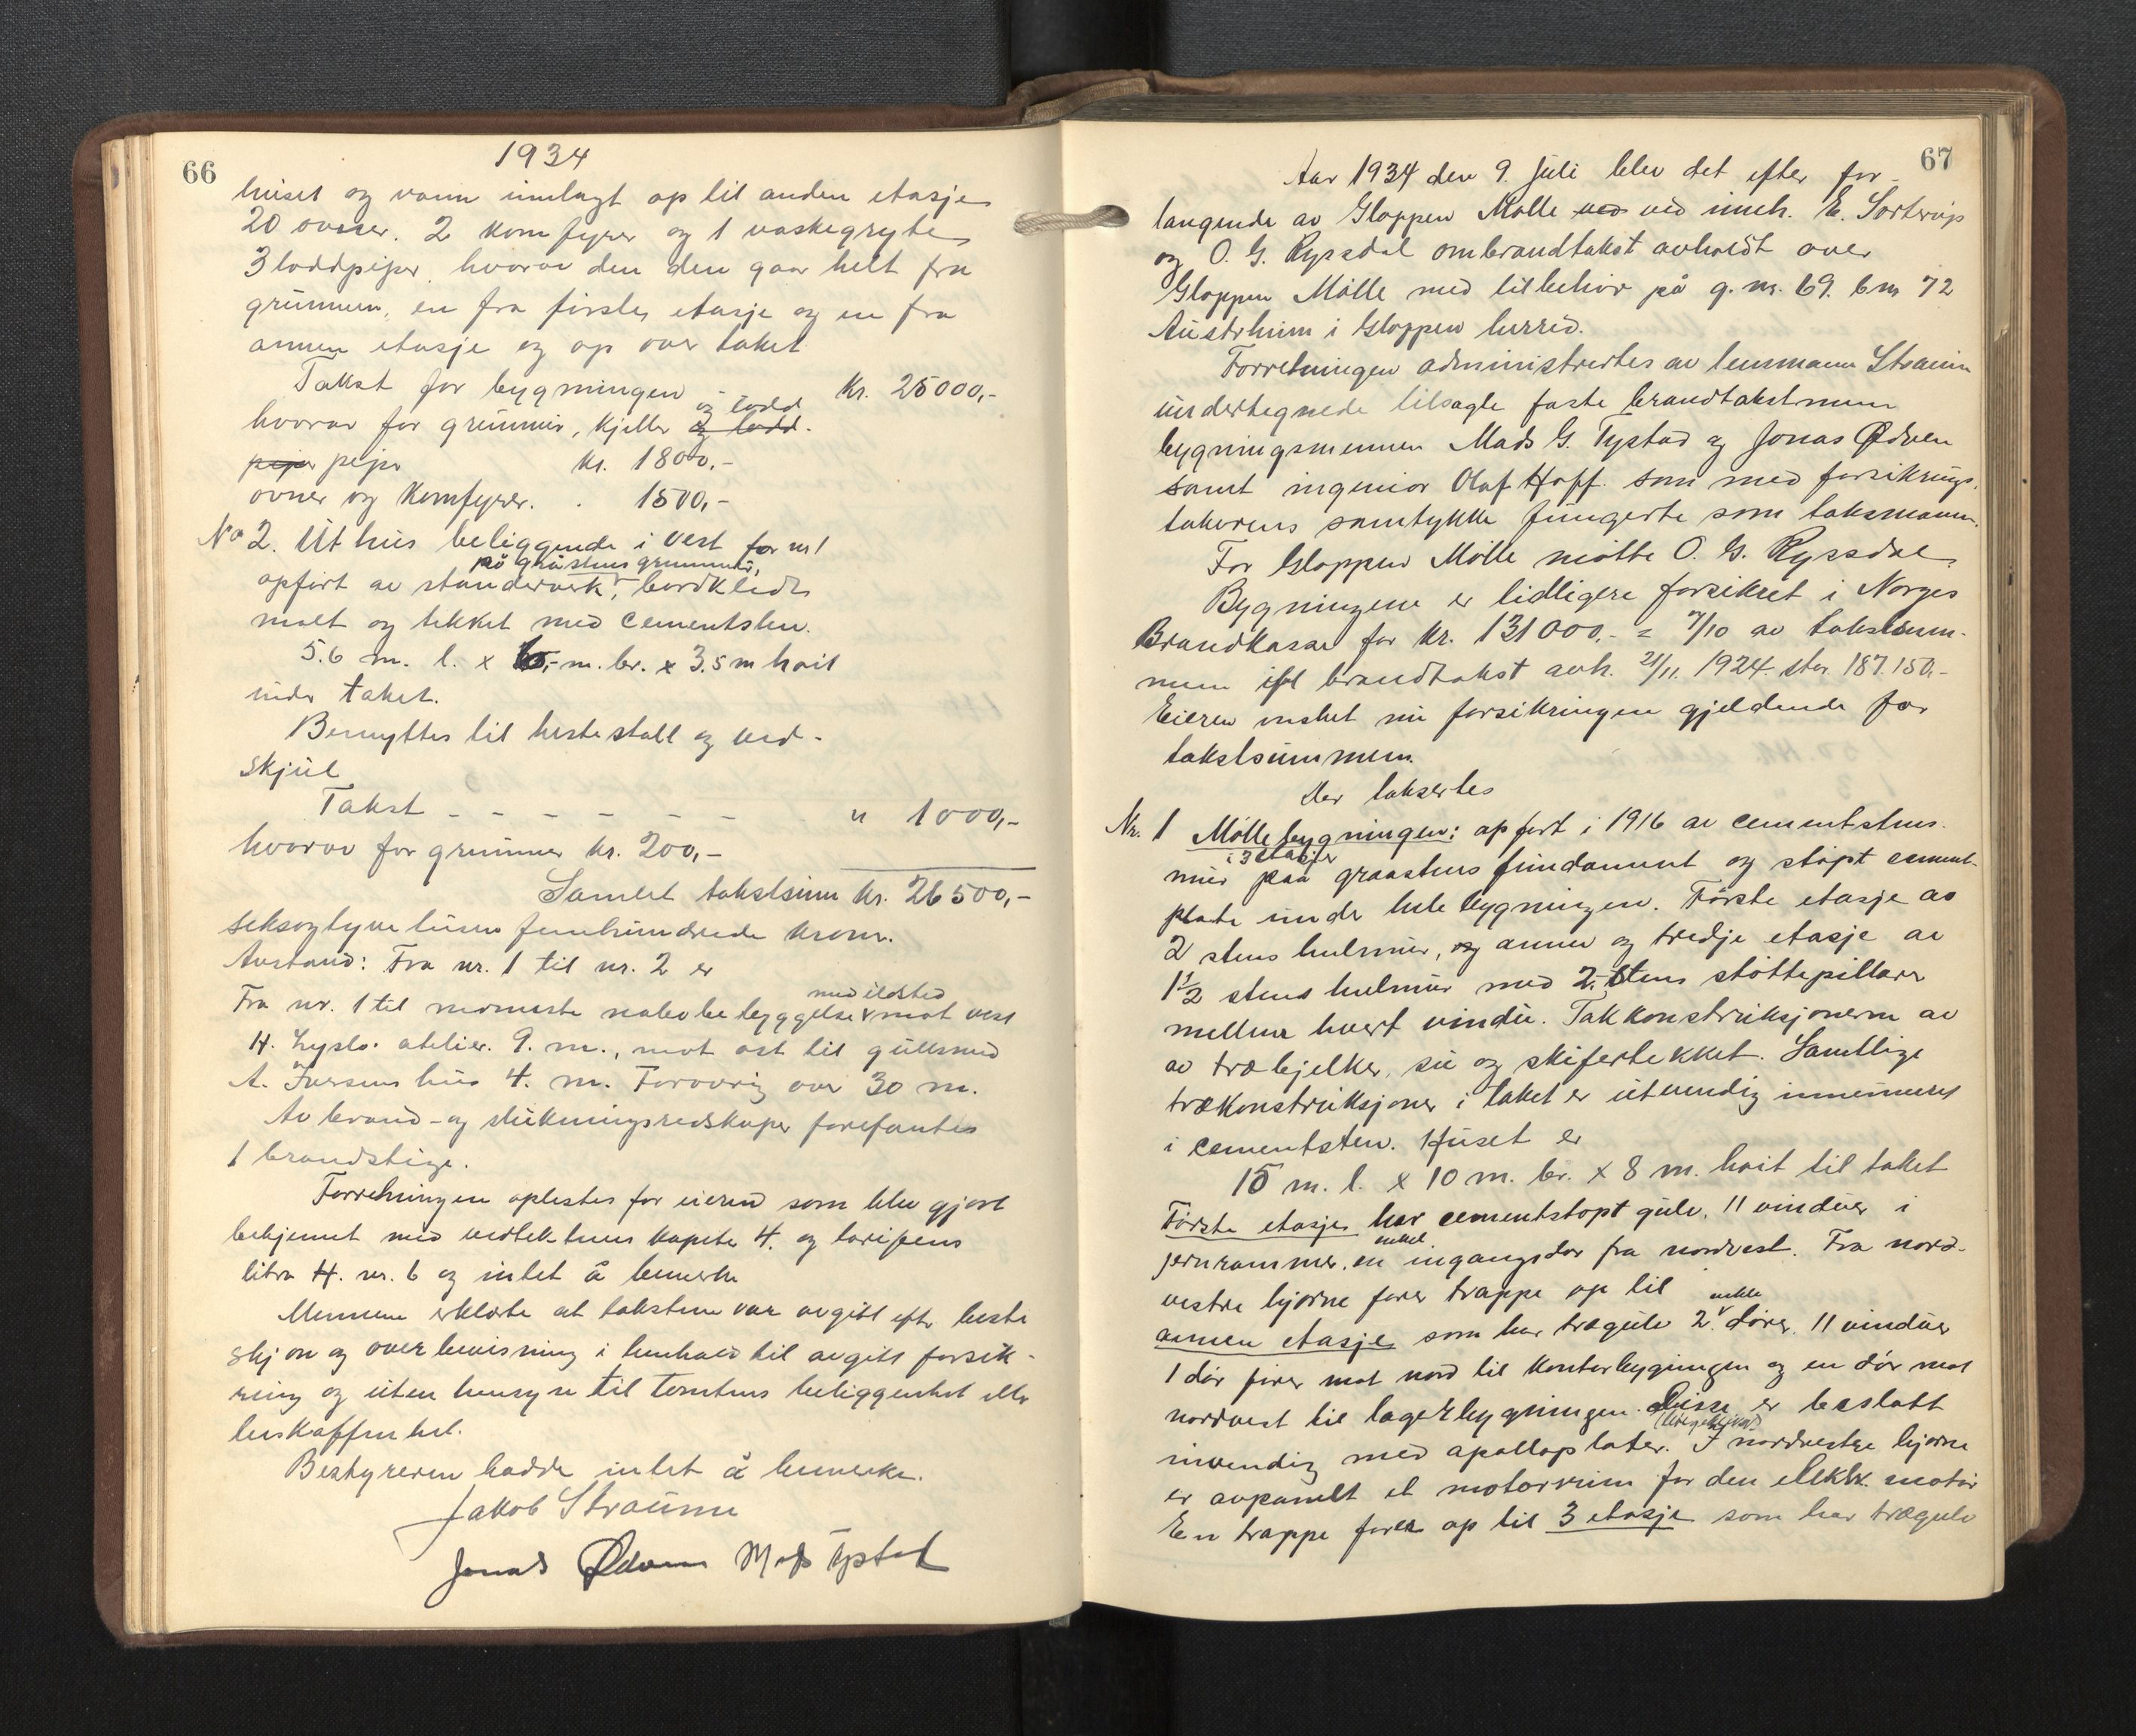 66
1934
huset og vann innlagt op til anden etasje
20 ovner. 2 komfyrer og 1 vaskegryte
3 loddpiper hvorav den den gaar helt fra
grunnen, en fra første etasje og en fra
annen etasje og op over taket
Takst for bygningen - kr. 25000,-
og lodd
hvorav for grunnmur, kjeller og lodd.
piper piper kr. 1800,-
ovner og komfyrer. . 1500,-
No 2. Uthus beliggende i vest for nr 1
på gråstens grunnmur,
opført av standerverk, bordkledt
malt og tekket med cementsten.
5.6 m. l. x m. br. x 3.5 m höit
under taket.
Benyttes til hestestall og ved-
skjul
Takst - - - - - - " 1000,-
hvorav for grunnmur kr. 200,-
Samlet takstsum kr. 26500,-
seksogtyve tusen femhundrede kroner.
Avstand: Fra nr. 1 til nr. 2 er
med ildsted
Fra nr. 1 til nærmeste nabobebyggelse mot vest
H. atelier. 9. m., mot øst til gullsmed
A. Iversens hus 4. m. Forøvrig over 30 m.
Av brand- og slukningsredskaper forefantes
1 brandstige.
Forretningen oplestes for eieren som blev gjort
bekjennt med vedtektenes kapitel 4. og tarifens
litra H. nr. 6 og intet å bemerke
Mennene erklærte at taksten var avgitt efter beste
skjøn og overbevisning i henhold til avgitt forsik-
ring og uten hensyn til tomtens beliggenhet eller
beskaffenhet.
Bestyreren hadde intet å bemerke.
Jakob Straume
Jonas Ødven Mads Tystad
67
Aar 1934 den 9. Juli blev det efter for-
langende av Gloppen Mölle ved ved inneh. E. Sørterup
og O. G. Ryssdal ombrandtakst avholdt over
Gloppen Mölle med tilbehör på g.nr. 69. bnr 72
Austrheim i Gloppen herred.
Forretningen administrertes av lensmann Straume
undertegnede tilsagte faste brandtakstmenn
bygningsmennen Mads G. Tystad og Jonas Ødven
samt ingeniør Olaf Hoff som med forsikrings-
takerens samtykke fungerte som taksmann.
For Gloppen Mölle mötte O. G. Ryssdal
Bygningene er tidligere forsikret i Norges
Brandkasse for kr. 131000.- = 7/10 av takstsum-
men ifl brandtakst avh. 21/11. 1924. stor 187.150,-
Eieren ønsket nu forsikringen gjeldende for
takstsummen.
Der taksertes
Nr. 1 Möllebygningen: opfört i 1916 av cementstens-
i 3 etasjer
mur paa graastens fundament og stöpt cement-
plate under hele bygningen. Förste etasje av
2 stens hulmur, og annen og tredje etasje av
1 1/2 stens hulmur med 2. stens stöttepillarer
mellem hvert vindu. Takkonstruksjonerne av
av træbjelker, su og skifertekket. Samtlige
trækonstruksjoner i taket er utvendig innmuret
i cementsten. Huset er
15 m. l. x 10 m. br. x 8 m. höit til taket
Förste etasje har cementstøpt gulv. 11 vinduer i
enkel
jernrammer, en ingangsdør fra nordvest. Fra nord-
vestre hjørne fører trappe op til
enkle
annen etasje som har trægulv 2. dører. 11 vinduer
1 dör förer mot nord til kontorbygningen og en dör mot
nordvest til lagerbygningen. Disse er beslått
innvendig med apolloplater. I nordvestre hjørne
er avpanelt et motorrum for den elektr. motor
En trappe fører op til 3 etasje som har trægulv